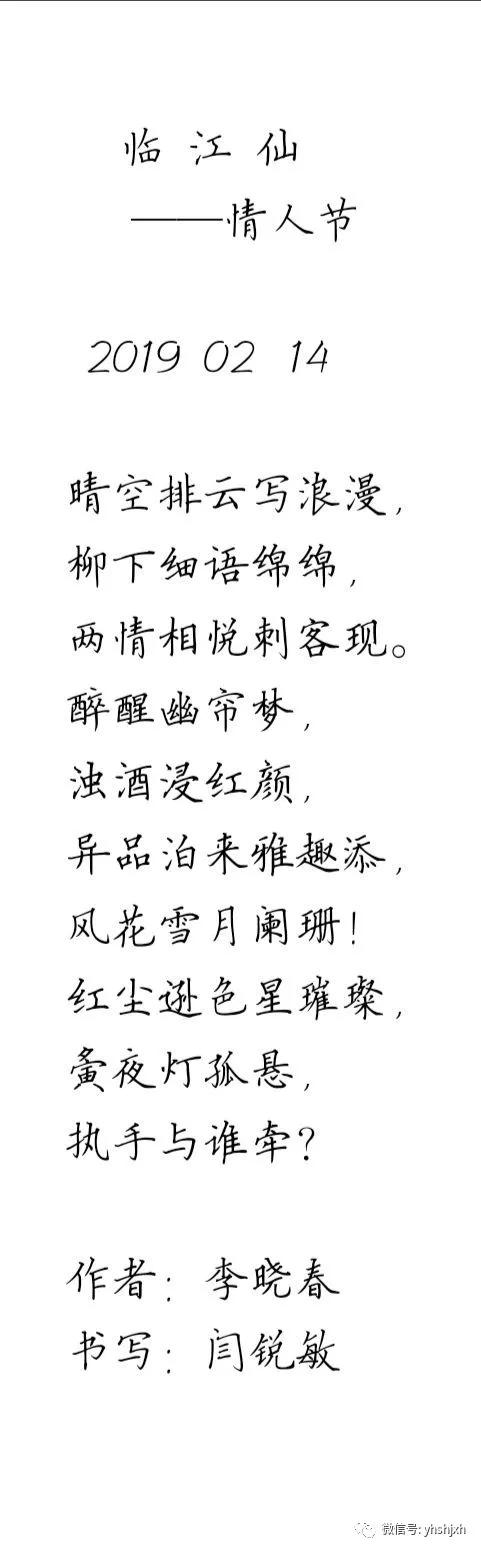 临 江 仙
——情人节
2019 02 14
晴空排云写浪漫，
柳下细语绵绵，
两情相悦刺客现。
醉醒幽帘梦，
浊酒浸红颜，
异品泊来雅趣添，
风花雪月阑珊！
红尘逊色星璀璨，
夤夜灯孤悬，
执手与谁牵？
作者：李晓春
书写：闫锐敏
微信号: yhshjxh